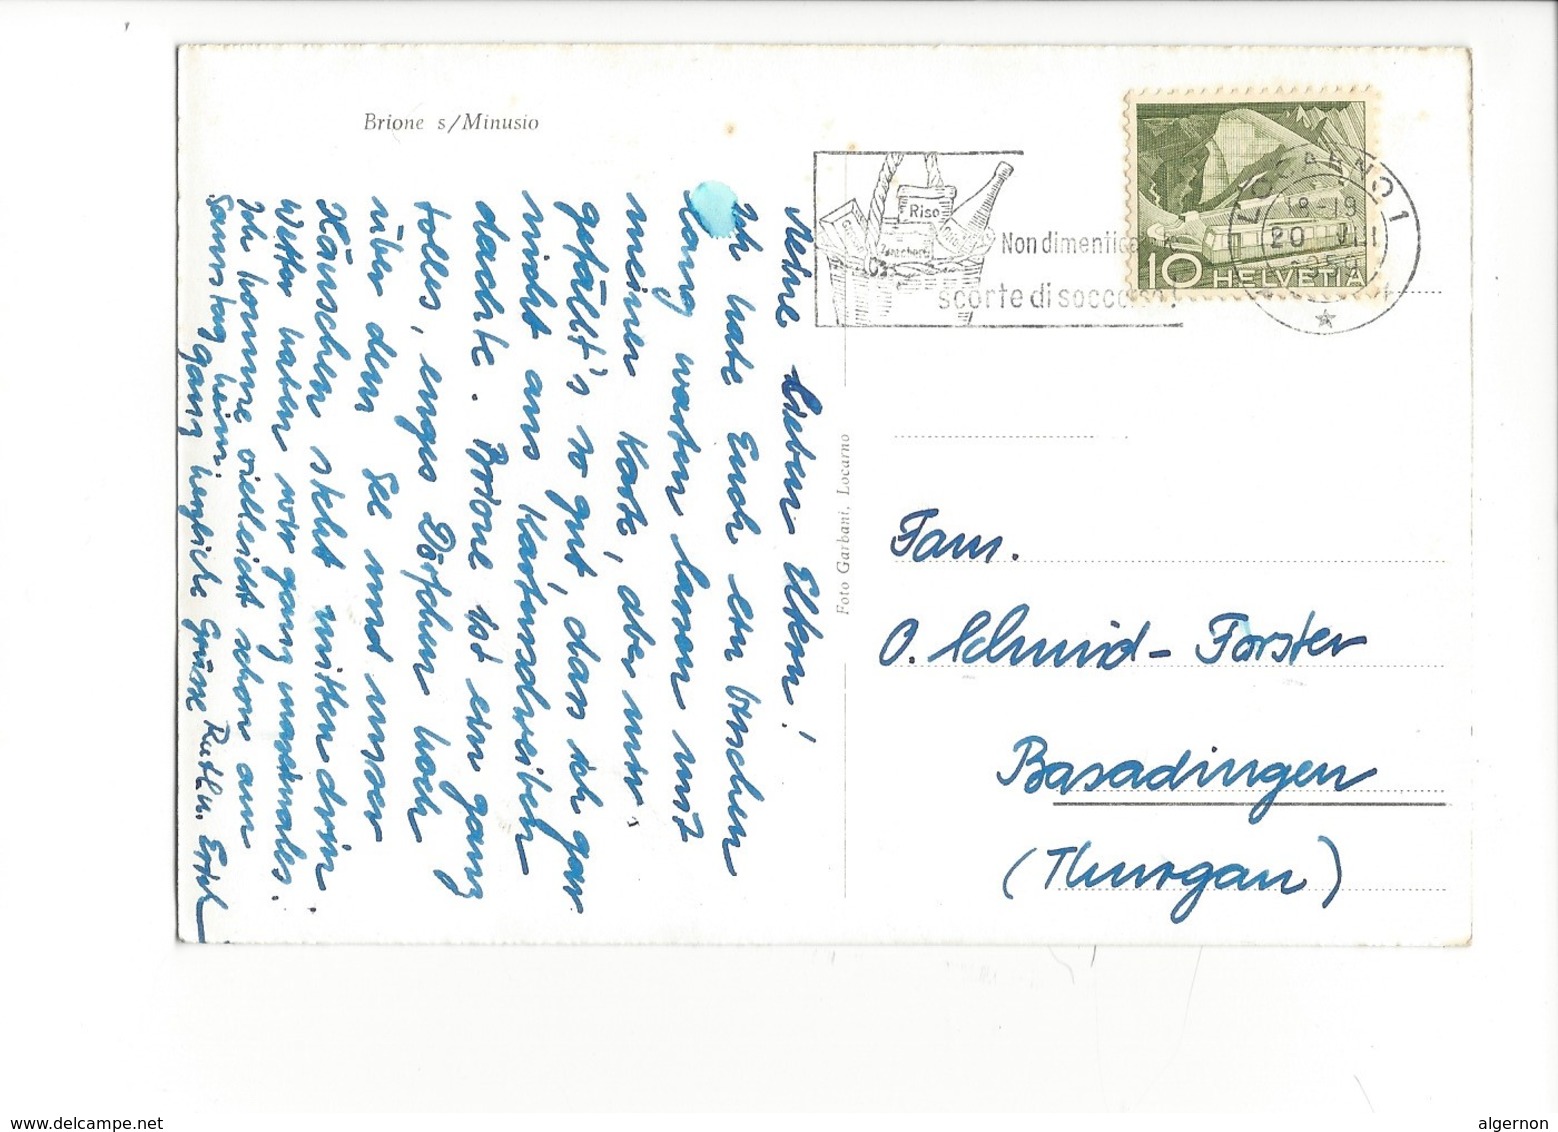 Brione s/Minusio
Meine lieben Eltern!
Ich habe Euch ein bisschen
lang warten lassen mit
meiner Karte, aber mir
gefällt's so gut, dass ich gar
nicht ans Kartenschreiben
dachte. Brione ist ein ganz
tolles, enges Dörfchen hoch
über dem See und unser
Häuschen steht mitten drin
Wetter haben wir ganz maximales.
Ich komme vielleicht schon am
Samstag heim.
Ganz herzliche Grüsse Ruth u. Erich
Foto Garbani, Locarno
Riso
Zucchero
Non dimentica
scorte di soccorso!
LOCARNO 1
18-19
20 VII
10 HELVETIA
Fam.
O. Schmid-Forster
Basadingen
(Thurgau)
www.delcampe.net
algernon